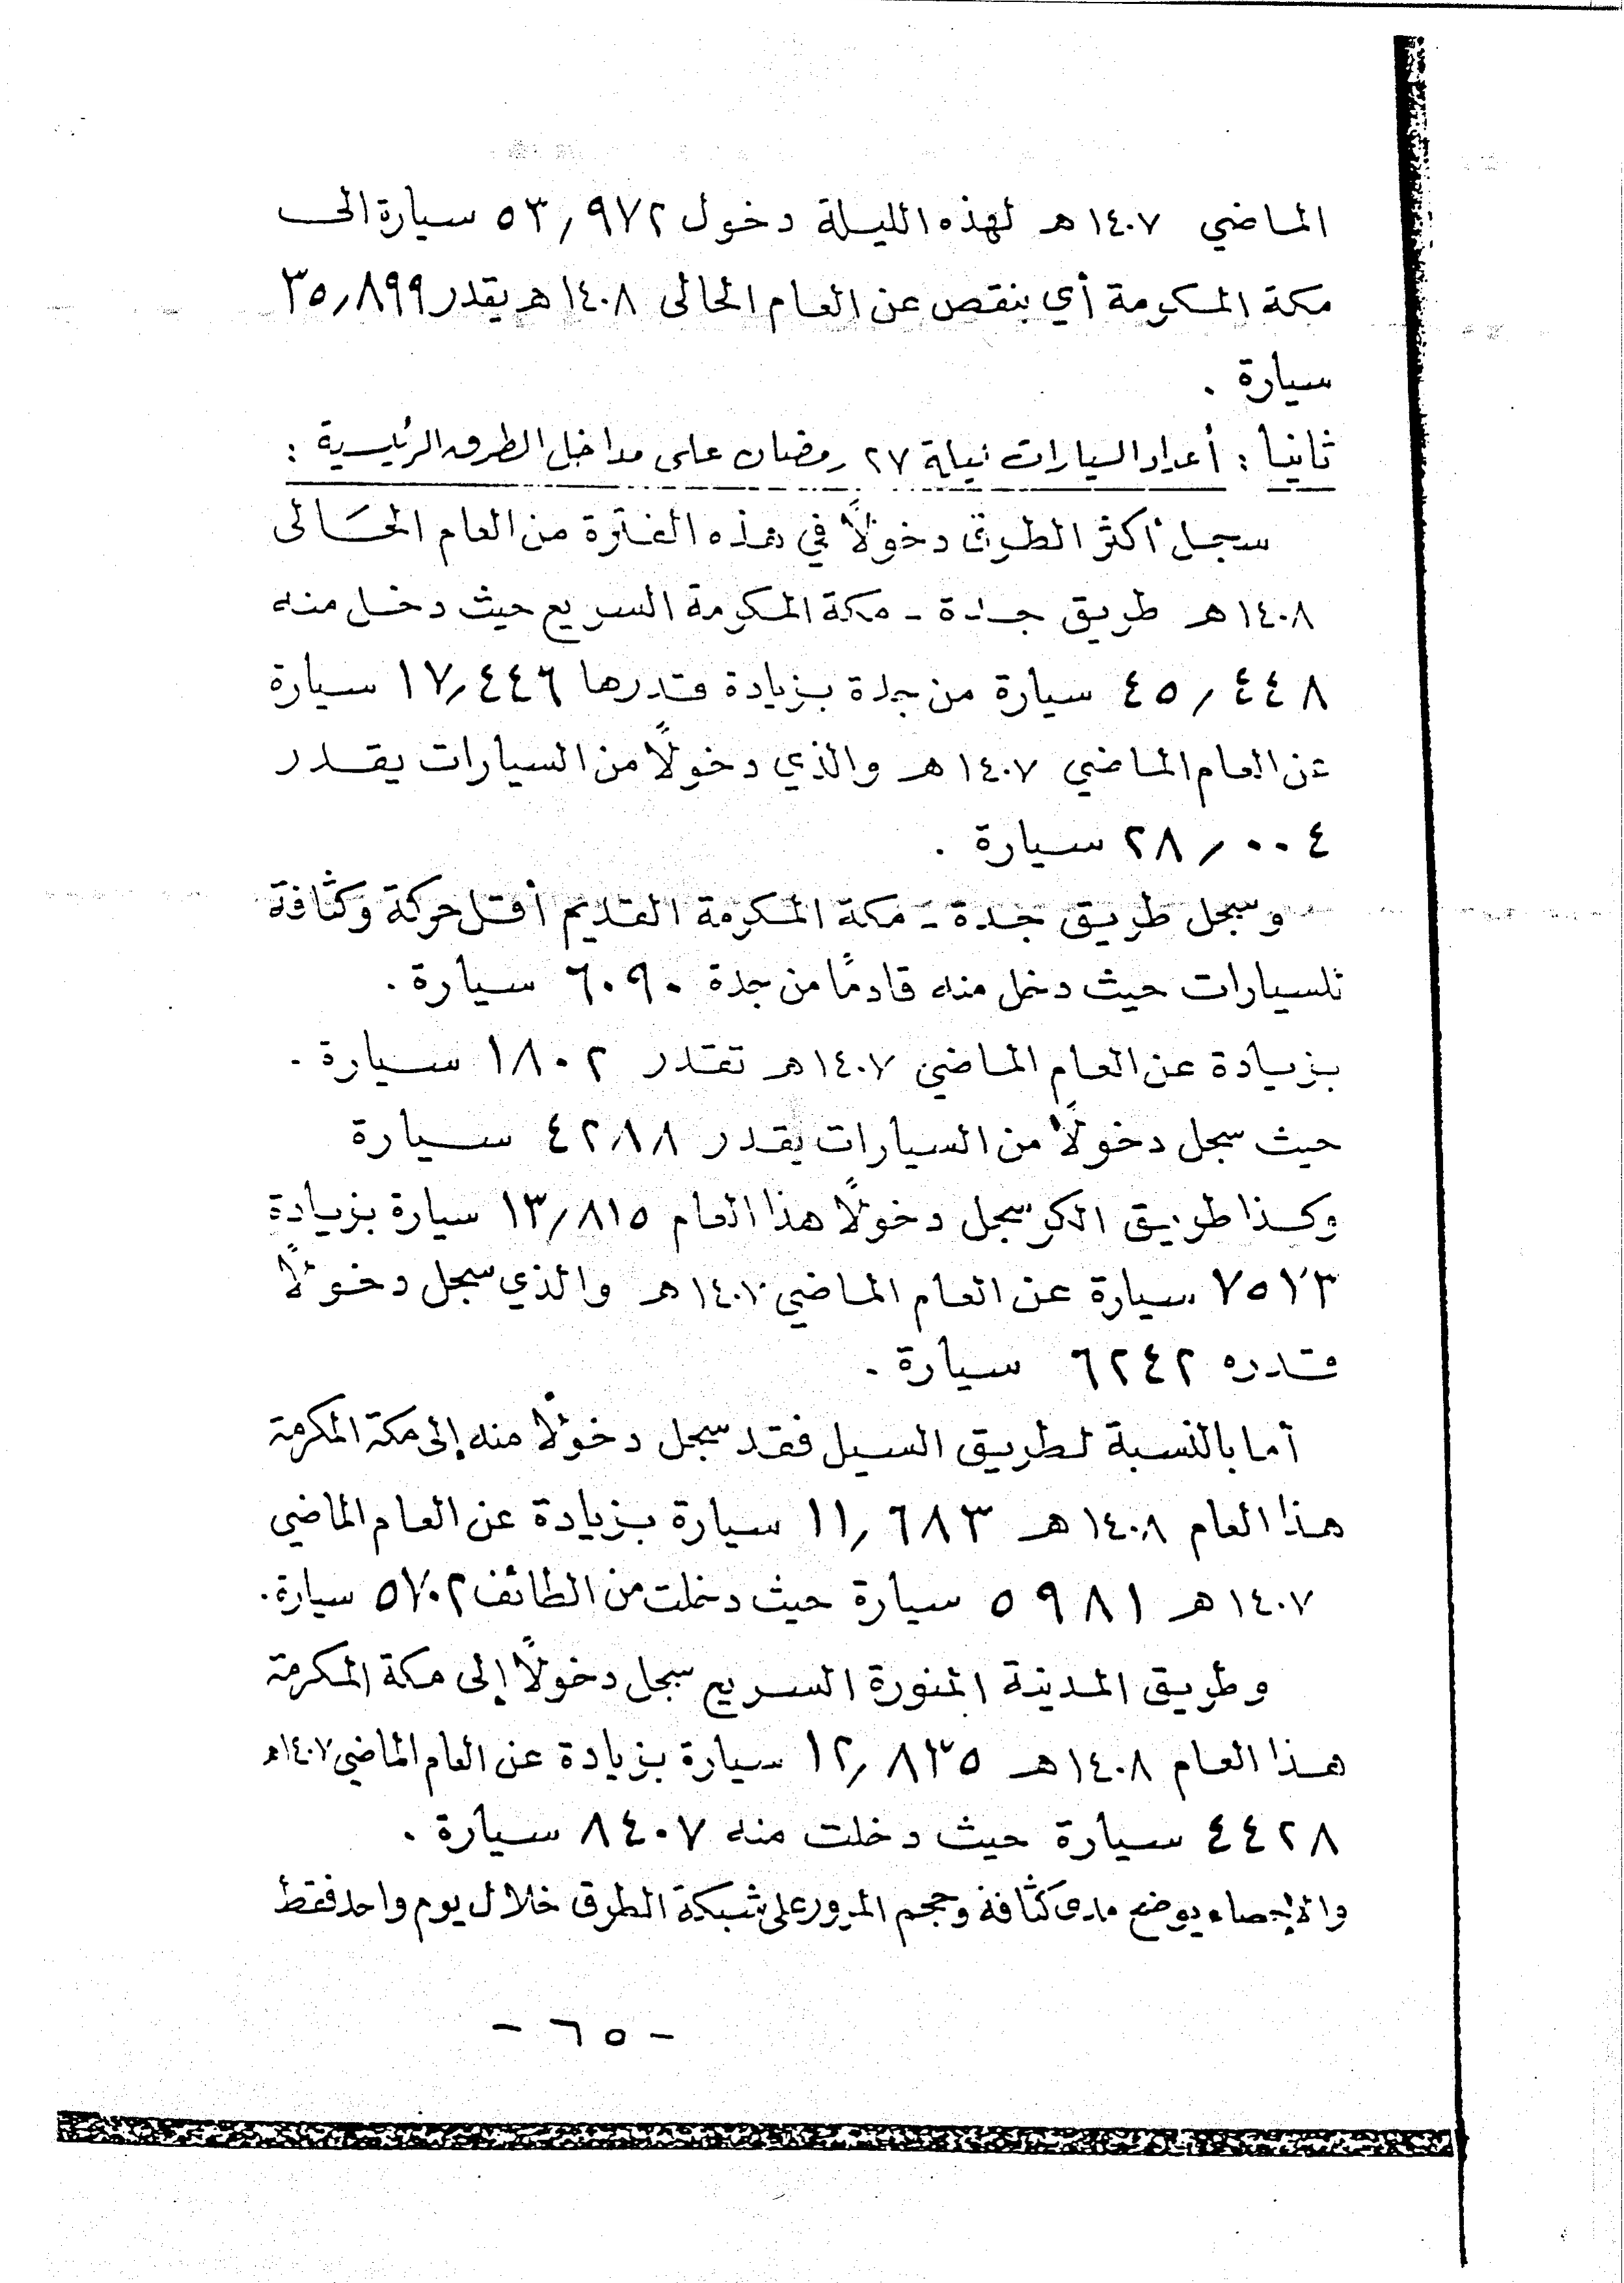 الماضي ١٤٠٧ هـ لهذه الليلة دخول ٥٣,٩٧٢ سيارة الى
مكة المكرمة أي بنقص عن العام الحالى ١٤٠٨ هـ يقدر ٣٥,٨٩٩
سيارة .
ثانيا : أعداد السيارات ليلة ٢٧ رمضان على مداخل الطرق الرئيسية :
سجل أكثر الطرق دخولاً في هذه الفترة من العام الحَالى
١٤٠٨ هـ طريق جدة - مكة المكرمة السريع حيث دخل منه
٤٥,٤٤٨ سيارة من جدة بزيادة قدرها ١٧,٤٤٦ سيارة
عن العام الماضي ١٤٠٧ هـ والذي دخولاً من السيارات يقدر
٢٨,٠٠٤ سيارة .
وسجل طريق جدة - مكة المكرمة القديم أقل حركة وكثافة
للسيارات حيث دخل منه قادمًا من جدة ٦٠٩٠ سيارة .
بزيادة عن العام الماضي ١٤٠٧ هـ تقدر ١٨٠٢ سيارة .
حيث سجل دخولاً من السيارات يقدر ٤٢٨٨ سيارة
وكذا طريق الكر سجل دخولاً هذا العام ١٣,٨١٥ سيارة بزيادة
٧٥٧٣ سيارة عن العام الماضي ١٤٠٧ هـ والذي سجل دخولاً
قدره ٦٢٤٢ سيارة .
أما بالنسبة لطريق السيل فقد سجل دخولاً منه إلى مكة المكرمة
هذا العام ١٤٠٨ هـ ١١,٦٨٣ سيارة بزيادة عن العام الماضي
١٤٠٧ هـ ٥٩٨١ سيارة حيث دخلت من الطائف ٥٧٠٢ سيارة .
وطريق المدينة المنورة السريع سجل دخولاً إلى مكة المكرمة
هذا العام ١٤٠٨ هـ ١٢,٨٣٥ سيارة بزيادة عن العام الماضي ١٤٠٧هـ
٤٤٢٨ سيارة حيث دخلت منه ٨٤٠٧ سيارة .
والإحصاء يوضح مدى كثافة وحجم المرور على شبكة الطرق خلال يوم واحد فقط
- ٦٥ -